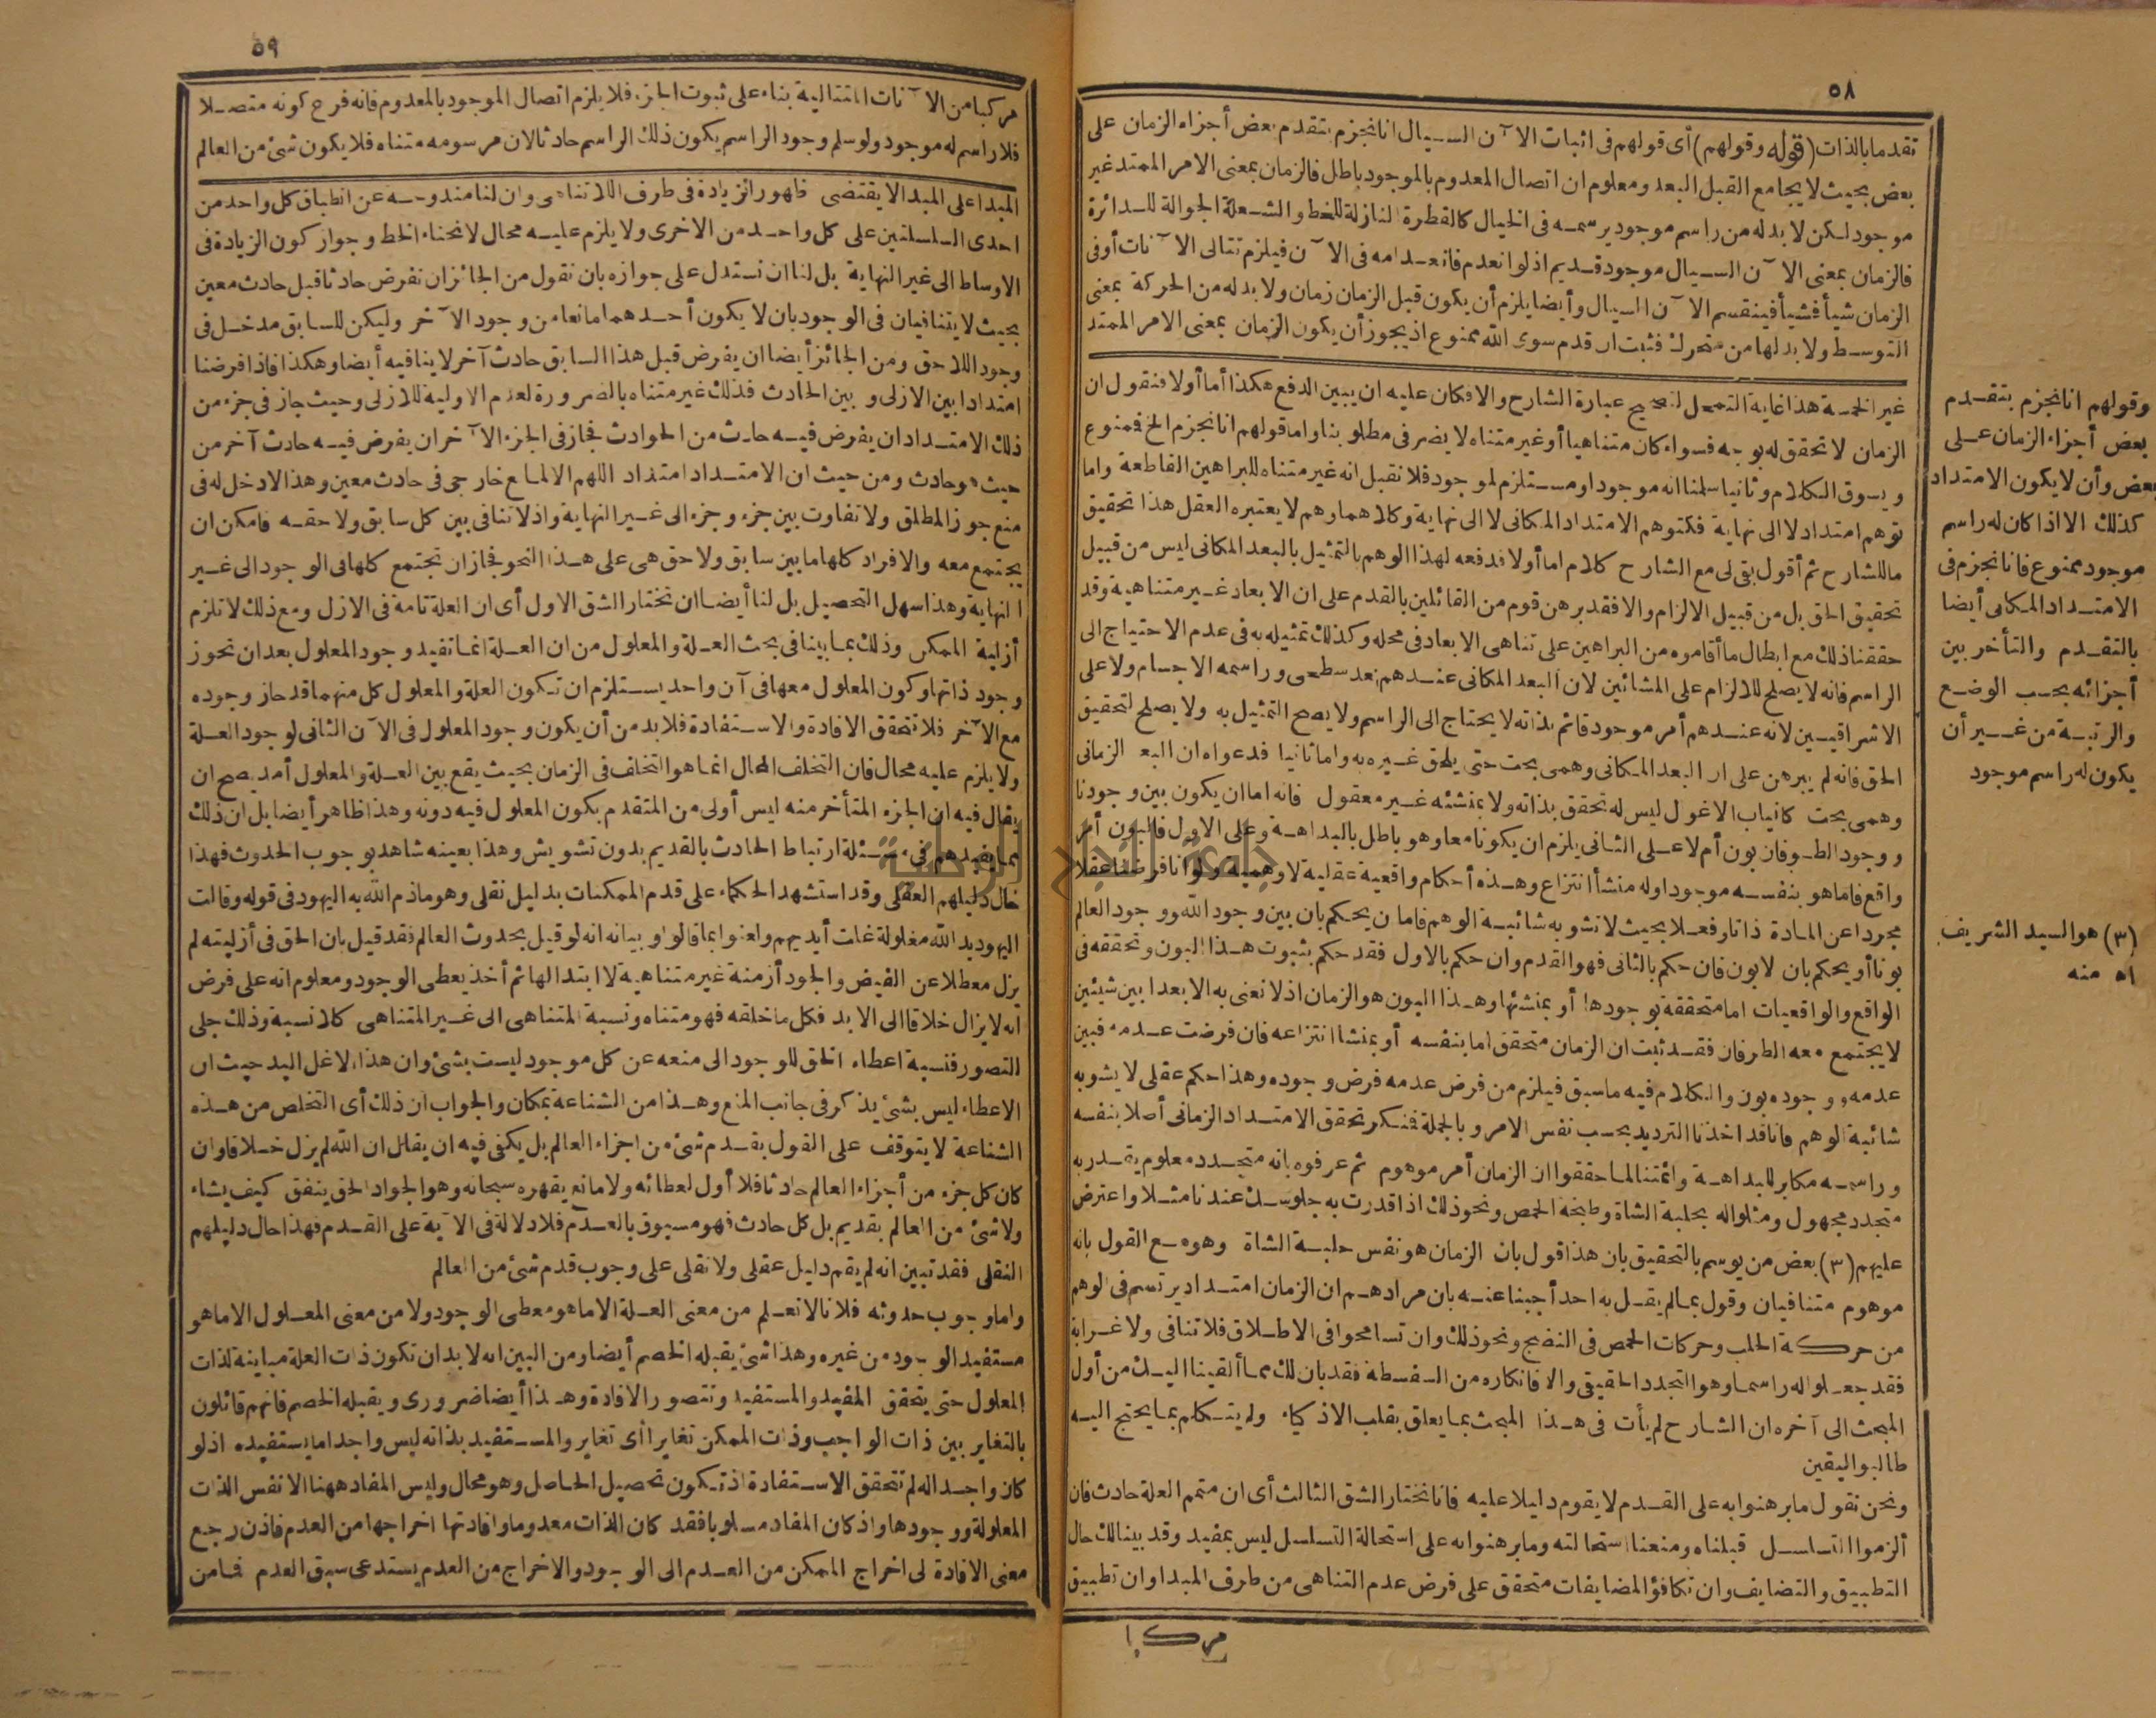 ٥٨
تقدما بالذات (قوله وقولهم) أى قولهم فى اثبات الآن السيال انا نجزم بتقدم بعض أجزاء الزمان على
بعض بحيث لا يجامع القبل البعد ومعلوم ان اتصال المعدوم بالموجود باطل فالزمان بمعنى الامر الممتد غير
موجود لكن لا بد له من راسم موجود يرسمه فى الخيال كالقطرة النازلة للخط والشعلة الجوالة للدائرة
فالزمان بمعنى الآن السيال موجود قديم اذ لو انعدم فانعدامه فى الآن فيلزم تتالى الآنات أو فى
الزمان شيأ فشيأ فينقسم الآن السيال وأيضا يلزم أن يكون قبل الزمان زمان ولا بد له من الحركة بمعنى
التوسط ولا بد لها من متحرك فثبت ان قدم سوى الله ممنوع اذ يجوز أن يكون الزمان بمعنى الامر الممتد
غير الخمسة هذا غاية التمحل لتصحيح عبارة الشارح والا فكان عليه ان يبين الدفع هكذا أما أولا فنقول ان
الزمان لا تحقق له بوجه فسواء كان متناهيا أو غير متناه لا يضر فى مطلوبنا واما قولهم انا نجزم الخ فمنوع
ويسوق الكلام وثانيا سلمنا انه موجود او مستلزم لموجود فلا نقبل انه غير متناه للبراهين القاطعة واما
توهم امتداد لا الى نهاية فكتوهم الامتداد المكانى لا الى نهاية وكلاهما وهم لا يعتبره العقل هذا تحقيق
ما للشارح ثم أقول بقى لى مع الشارح كلام اما أولا فدفعه لهذا الوهم بالتمثيل بالبعد المكانى ليس من قبيل
تحقيق الحق بل من قبيل الالزام والا فقد برهن قوم من القائلين بالقدم على ان الابعاد غير متناهية وقد
حققنا ذلك مع ابطال ما أقاموه من البراهين على تناهى الابعاد فى محله وكذلك تمثيله به فى عدم الاحتياج الى
الراسم فانه لا يصلح للالزام على المشائين لان البعد المكانى عندهم بعد سطحى وراسمه الاجسام ولا على
الاشراقيين لانه عندهم أمر موجود قائم بذاته لا يحتاج الى الراسم ولا يصح التمثيل به ولا يصلح لتحقيق
الحق فانه لم يبرهن على ان البعد المكانى وهمى بحت حتى يلحق غيره به واما ثانيا فدعواه ان البعد الزمانى
وهمى بحت كانياب الاغوال ليس له تحقق بذاته ولا بمنشئه غير معقول فانه اما ان يكون بين وجودنا
ووجود الطوفان بون أم لا على الثانى يلزم ان يكونا معا وهو باطل بالبداهة وعلى الاول فالبون أمر
واقع فاما هو بنفسه موجود او له منشأ انتزاع وهذه أحكام واقعية عقلية لا وهمية ولو انا فرضنا عقلا
مجردا عن المادة ذاتا وفعلا بحيث لا تشوبه شائبة الوهم فاما ن يحكم بان بين وجود الله ووجود العالم
بونا أو يحكم بان لا بون فان حكم بالثانى فهو القدم وان حكم بالاول فقد حكم بثبوت هذا البون وتحققه فى
الواقع والواقعيات اما متحققة بوجودها أو بمنشئها وهذا البون هو الزمان اذ لا نعنى به الا بعدا بين شيئين
لا يجتمع معه الطرفان فقد ثبت ان الزمان متحقق اما بنفسه أو بمنشا انتزاعه فان فرضت عدمه فبين
عدمه ووجوده بون والكلام فيه ما سبق فيلزم من فرض عدمه فرض وجوده وهذا حكم عقلى لا يشوبه
شائبة الوهم فانا قد اخذنا الترديد بحسب نفس الامر وبالجملة فنكر تحقق الامتداد الزمانى أصلا بنفسه
وراسمه مكابر للبداهة وائمتنا لما حققوا ان الزمان أمر موهوم ثم عرفوه بانه متجدد معلوم يقدر به
متجدد مجهول ومثلوا له بحلبة الشاة وطبخة الحمص ونحو ذلك اذا قدرت به جلوسك عندنا مثلا واعترض
عليهم (٣) بعض من يوسم بالتحقيق بان هذا قول بان الزمان هو نفس حلبة الشاة وهو مع القول بانه
موهوم متنافيان وقول بما لم يقل به احد أجبنا عنه بان مرادهم ان الزمان امتداد يرتسم فى الوهم
من حركة الحلب وحركات الحمص فى النضج ونحو ذلك وان تسامحوا فى الاطلاق فلا تنافى ولا غرابة
فقد جعلوا له راسما وهو التجدد الحقيقى والا فانكاره من السفسطة فقد بان لك مما ألقينا اليك من أول
المبحث الى آخره ان الشارح لم يأت فى هذا المبحث بما يعلق بقلب الاذكياء ولم يتكلم بما يحتج اليه
طالبو اليقين
ونحن نقول ما برهنوا به على القدم لا يقوم دليلا عليه فانا نختار الشق الثالث أى ان متمم العلة حادث فان
ألزموا التسلسل قبلناه ومنعنا استحالته وما برهنوا به على استحالة التسلسل ليس بمفيد وقد بينا لك حال
التطبيق والتضايف وان تكافؤ المضايفات متحقق على فرض عدم التناهى من طرف المبدا وان تطبيق
مركبا
وقولهم انا نجزم بتقدم
بعض أجزاء الزمان على
بعض وأن لا يكون الامتداد
كذلك الا اذا كان له راسم
موجود ممنوع فانا نجزم فى
الامتداد المكانى أيضا
بالتقدم والتأخر بين
أجزائه بحسب الوضع
والرتبة من غير أن
يكون له راسم موجود
(٣) هو السيد الشريف
اه منه
٥٩
مركبا من الآنات المتتالية بناء على ثبوت الجزء فلا يلزم اتصال الموجود بالمعدوم فانه فرع كونه متصلا
فلا راسم له موجود ولو سلم وجود الراسم يكون ذلك الراسم حادثا لان مرسومه متناه فلا يكون شئ من العالم
المبدا على المبدا لا يقتضى ظهور الزيادة فى طرف اللاتناهى وان لنا مندوحة عن انطباق كل واحد من
احدى السلسلتين على كل واحد من الاخرى ولا يلزم عليه محال لانحناء الخط وجواز كون الزيادة فى
الاوساط الى غير النهاية بل لنا ان نستدل على جوازه بان نقول من الجائز ان نفرض حادثا قبل حادث معين
بحيث لا يتنافيان فى الوجود بان لا يكون أحدهما مانعا من وجود الآخر وليكن للسابق مدخل فى
وجود اللاحق ومن الجائز أيضا ان يفرض قبل هذا السابق حادث آخر لا ينافيه أيضا وهكذا فاذا فرضنا
امتدادا بين الازلى وبين الحادث فذلك غير متناه بالضرورة لعدم الاولية للازلى وحيث جاز فى جزء من
ذلك الامتداد ان يفرض فيه حادث من الحوادث فجاز فى الجزء الآخر ان يفرض فيه حادث آخر من
حيث هو حادث ومن حيث ان الامتداد امتداد اللهم الا لمانع خارجى فى حادث معين وهذا لا دخل له فى
منع جوز المطلق ولا تفاوت بين جزء وجزء الى غير النهاية واذ لا تنافى بين كل سابق ولاحقه فامكن ان
يجتمع معه والافراد كلها ما بين سابق ولاحق هى على هذا النحو فجاز ان تجتمع كلها فى الوجود الى غير
النهاية وهذا سهل التحصيل بل لنا أيضا ان نختار الشق الاول أى ان العلة تامة فى الازل ومع ذلك لا تلزم
أزلية الممكن وذلك بما بينا فى بحث العلة والمعلول من ان العلة انما تفيد وجود المعلول بعد ان تحوز
وجود ذاتها وكون المعلول معها فى آن واحد يستلزم ان تكون العلة والمعلول كل منهما قد حاز وجوده
مع الآخر فلا تتحقق الافادة والاستفادة فلا بد من أن يكون وجود المعلول فى الآن الثانى لوجود العلة
ولا يلزم عليه محال فان التخلف المحال انما هو التخلف فى الزمان بحيث يقع بين العلة والمعلول أمد يصح ان
يقال فيه ان الجزء المتأخر منه ليس أولى من المتقدم بكون المعلول فيه دونه وهذا ظاهر أيضا بل ان ذلك
مما يفيدهم فى مسئلة ارتباط الحادث بالقديم بدون تشويش وهذا بعينه شاهد بوجوب الحدوث فهذا
حال دليلهم العقلى وقد استشهد الحكماء على قدم الممكنات بدليل نقلى وهو ما ذم الله به اليهود فى قوله وقالت
اليهود يد الله مغلولة غلت أيديهم ولعنوا بما قالوا وبيانه انه لو قيل بحدوث العالم فقد قيل بان الحق فى أزليته لم
يزل معطلا عن الفيض والجود أزمنة غير متناهية لا ابتدا لها ثم أخذ يعطى الوجود ومعلوم انه على فرض
انه لا يزال خلاقا الى الابد فكل ما خلقه فهو متناه ونسبة المتناهى الى غير المتناهى كلا نسبة وذلك جلى
التصور فنسبة اعطاء الحق للوجود الى منعه عن كل موجود ليست بشئ وان هذا الا غل اليد حيث ان
الاعطاء ليس بشئ يذكر فى جانب المنع وهذا من الشناعة بمكان والجواب ان ذلك أى التخلص من هذه
الشناعة لا يتوقف على القول بقدم شئ من اجزاء العالم بل يكفى فيه ان يقال ان الله لم يزل خلاقا وان
كان كل جزء من أجزاء العالم حادثا فلا أول لعطائه ولا مانع يقهره سبحانه وهو الجواد الحق ينفق كيف يشاء
ولا شئ من العالم بقديم بل كل حادث فهو مسبوق بالعدم فلا دلالة فى الآية على القدم فهذا حال دليلهم
النقلى فقد تبين انه لم يقم دليل عقلى ولا نقلى على وجوب قدم شئ من العالم
واما وجوب حدوثه فلانا لا نعلم من معنى العلة الا ما هو معطى الوجود ولا من معنى المعلول الا ما هو
مستفيد الوجود من غيره وهذا شئ يقبله الخصم أيضا ومن البين انه لا بد ان تكون ذات العلة مباينة لذات
المعلول حتى يتحقق المفيد والمستفيد وتتصور الافادة وهذا أيضا ضرورى ويقبله الخصم فانهم قائلون
بالتغاير بين ذات الواجب وذات الممكن تغايرا أى تغاير والمستفيد بذاته ليس واجدا ما يستفيده اذ لو
كان واجدا له لم تتحقق الاستفادة اذ تكون تحصيل الحاصل وهو محال وليس المفاد ههنا الا نفس الذات
المعلولة ووجودها واذ كان المفاد مسلوبا فقد كان الذات معدوما وافادتها اخراجها من العدم فاذن رجع
معنى الافادة لى اخراج الممكن من العدم الى الوجود والاخراج من العدم يستدعى سبق العدم فما من
جامعة النجاح الوطنية